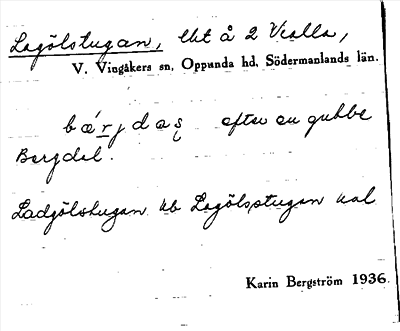 Lagölstugan, lht å 2 Vialla,
V. Vingåkers sn, Oppunda hd, Södermanlands län.
bœrjdas efter en gubbe
Bergdal.
Ladgölstugan kb Lagölstugan kal
Karin Bergström 1936.